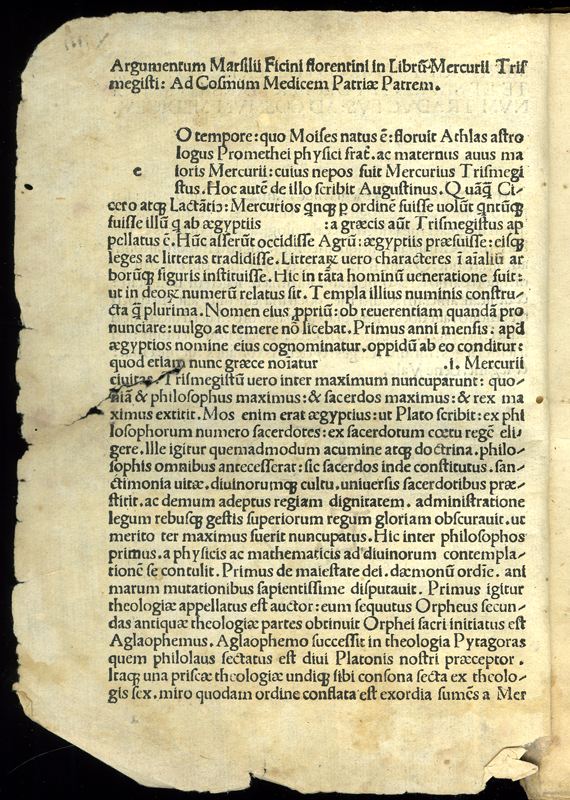 Argumentum Marsilii Ficini florentini in Librũ Mercurii Tris
megisti: Ad Cosmum Medicem Patriæ Patrem.
e
O tempore: quo Moises natus ẽ: floruit Athlas astro
logus Promethei physici frat̃. ac maternus auus ma
ioris Mercurii: cuius nepos fuit Mercurius Trismegi
stus. Hoc autẽ de illo scribit Augustinus. Quãq̃ Ci-
cero atqꝫ Lactãtiꝰ: Mercurios qnqꝫ p̱ ordinẽ fuisse uolũt qntũqꝫ
fuisse illũ q ab ægyptiis :a græcis aũt Trismegistus ap
pellatus ẽ. Hũc asserũt occidisse Agrũ: ægyptiis præfuisse: eisqꝫ
leges ac litteras tradidisse. Litteraꝝ uero characteres ĩ aĩaliũ ar
borũqꝫ figuris instituisse. Hic in tãta hominũ ueneratione fuit:
ut in deoꝝ numerũ relatus sit. Templa illius numinis constru-
cta q̃ plurima. Nomen eius ꝓprĩu: ob reuerentiam quandã pro
nunciare: uulgo ac temere nõ licebat. Primus anni mensis: apđ
ægyptios nomine eius cognominatur. oppidũ ab eo conditur:
quod etiam nunc græce noĩatur .i. Mercurii
ciuitas. Trismegistũ uero inter maximum nuncuparunt: quo-
niã & philosophus maximus: & sacerdos maximus: & rex ma
ximus extitit. Mos enim erat ægyptius: ut Plato scribit: ex phi
losophorum numero sacerdotes: ex sacerdotum cœtu regẽ eli-
gere. Ille igitur quemadmodum acumine atqꝫ doctrina. philo-
sophis omnibus antecesserat: sic sacerdos inde constitutus. san-
ctimonia uitæ. diuinorumqꝫ cultu. uniuersis sacerdotibus præ-
stitit. ac demum adeptus regiam dignitatem. administratione
legum rebusqꝫ gestis superiorum regum gloriam obscurauit. ut
merito ter maximus fuerit nuncupatus. Hic inter philosophos
primus. a physicis ac mathematicis ad diuinorum contempla-
tionẽ se contulit. Primus de maiestate dei. dæmonũ ordĩe. ani
marum mutationibus sapientissime disputauit. Primus igitur
theologiæ appellatus est auctor: eum sequutus Orpheus secun-
das antiquæ theologiæ partes obtinuit Orphei sacri initiatus est
Aglaophemus. Aglaophemo successit in theologia Pytagoras
quem philolaus sectatus est diui Platonis nostri præceptor.
Itaqꝫ una priscæ theologiæ undiqꝫ sibi consona secta ex theolo-
gis sex. miro quodam ordine conflata est exordia sumẽs a Mer